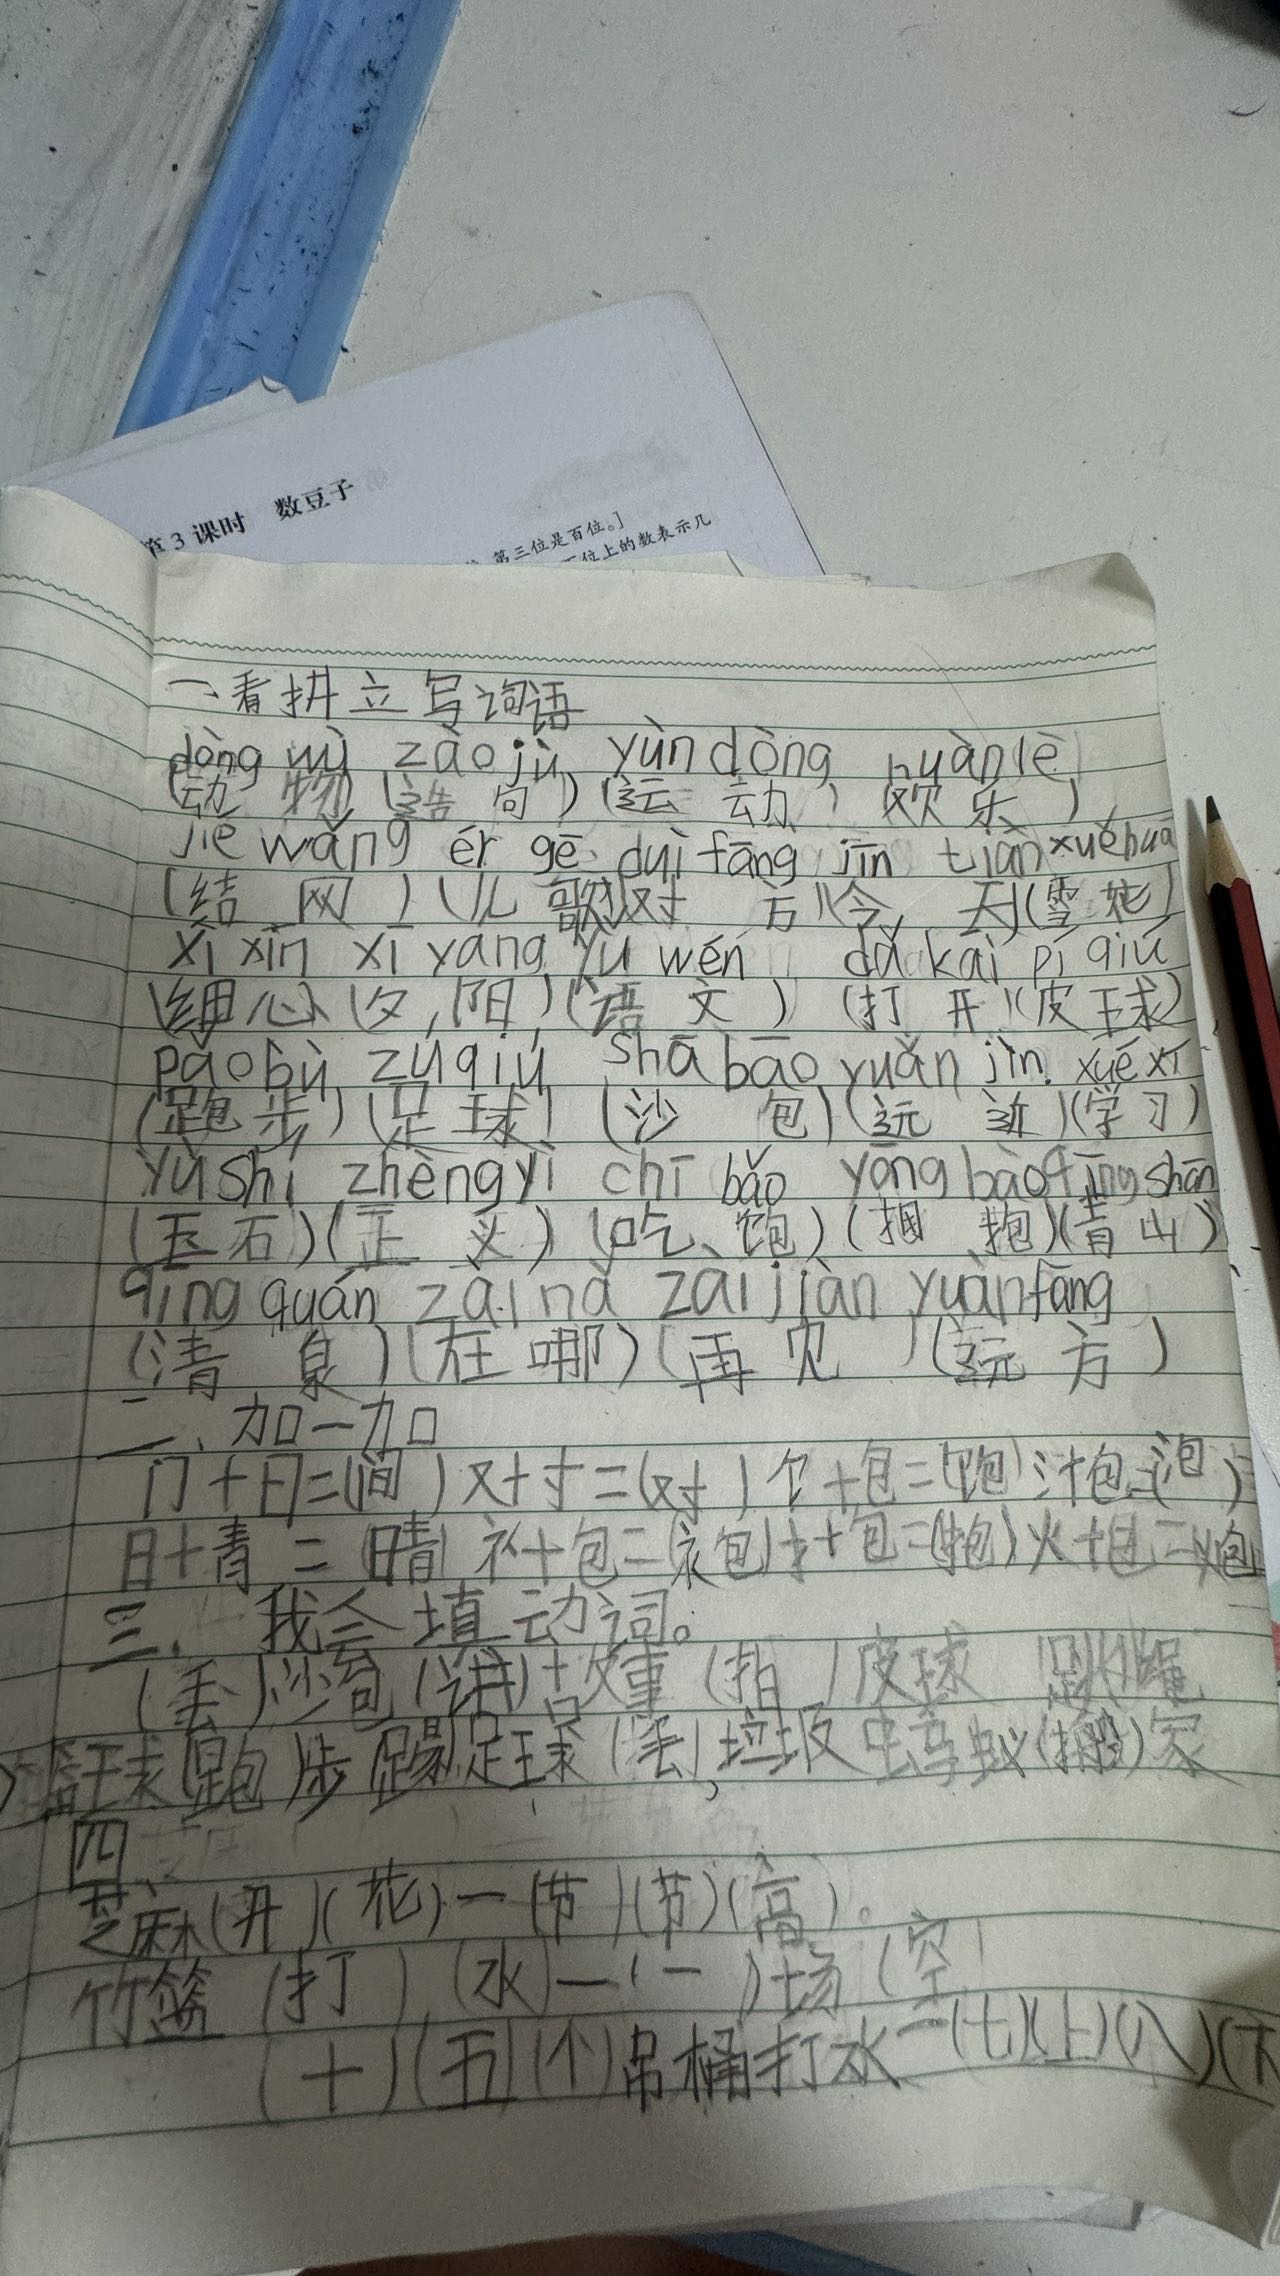 第3课时 数豆子
第三位是百位。]
位上的数表示几
一看拼立写词语
dòng wù zào jù yùn dòng huàn lè
(动 物)(造 句)(运 动)(欢 乐)
jié wǎng ér gē duì fāng jīn tiàn xuě hua
(结 网)(儿 歌)(对 方)(今 天)(雪 花)
xì xīn xī yang yǔ wén dǎ kāi pí qiú
(细 心)(夕 阳)(语 文)(打 开)(皮 球)
pao bù zú qiú shā bāo yuǎn jìn xué xí
(跑 步)(足 球)(沙 包)(远 近)(学 习)
yù shí zhèng yì chī bǎo yōng bào qīng shān
(玉 石)(正 义)(吃 饱)(拥 抱)(青 山)
qīng quán zài nǎ zai jiàn yuàn fāng
(清 泉)(在 哪)(再 见)(远 方)
二、加一加
门+日=(间) 又+寸=(对) 饣+包=(饱) 氵+包=(泡)
日+青=(晴) 衤+包=(袍) 扌+包=(抱) 火+包=(炮)
三、我会填动词。
(丢)沙包 (讲)故事 (拍)皮球 (跳)绳
篮球 (跑)步 (踢)足球 (丢)垃圾 蚂蚁(搬)家
四
芝麻(开)(花)一(节)(节)(高)。
竹篮(打)(水)一(一)场(空)
(十)(五)(个)吊桶打水一(七)(上)(八)(下